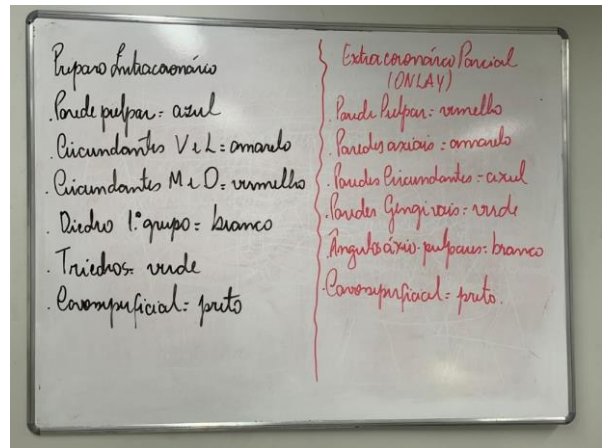 Preparo Intracoronário
. Parede pulpar = azul
. Circundantes V e L = amarelo
. Circundantes M e D = vermelho
. Diedro 1.º grupo = branco
. Triedros = verde
. Cavosuperficial = preto
Extracoronário Parcial
(ONLAY)
. Parede Pulpar = vermelho
. Paredes axiais = amarelo
. Paredes Circundantes = azul
. Paredes Gengivais = verde
. Ângulos áxio-pulpares = branco
. Cavosuperficial = preto.